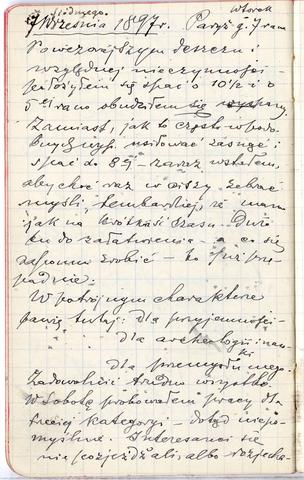 siódmego. Wtorek
7 Września 1897 r. Paryż g. 7 rano
Po wczorajszym deszczu i
względnej nieczynności -
położyłem się spać o 10½ i o
5 ej rano obudziłem się wyspany.
Zamiast, jak to często w podo
bnych usiłować zasnąć i
spać do 8 ej - zaraz wstałem,
aby choć raz w ciszy zebrać
myśli, tembardziej, że mam
jak na krótkość czasu - dużo
do załatwienia - a co się
zapomni zrobić - to już prze
padnie. -
W potrójnym charakterze
bawię tutaj: dla przyjemności -
dla archeologii i nau
ki
dla przemysłu mego.
Zadowolić trudno wszystko
W Sobotę próbowałem pracy dla
trzeciej kategoryi - dotąd niepo-
myślnie. Interesanci się
porozjeżdżali, albo rozjecha-